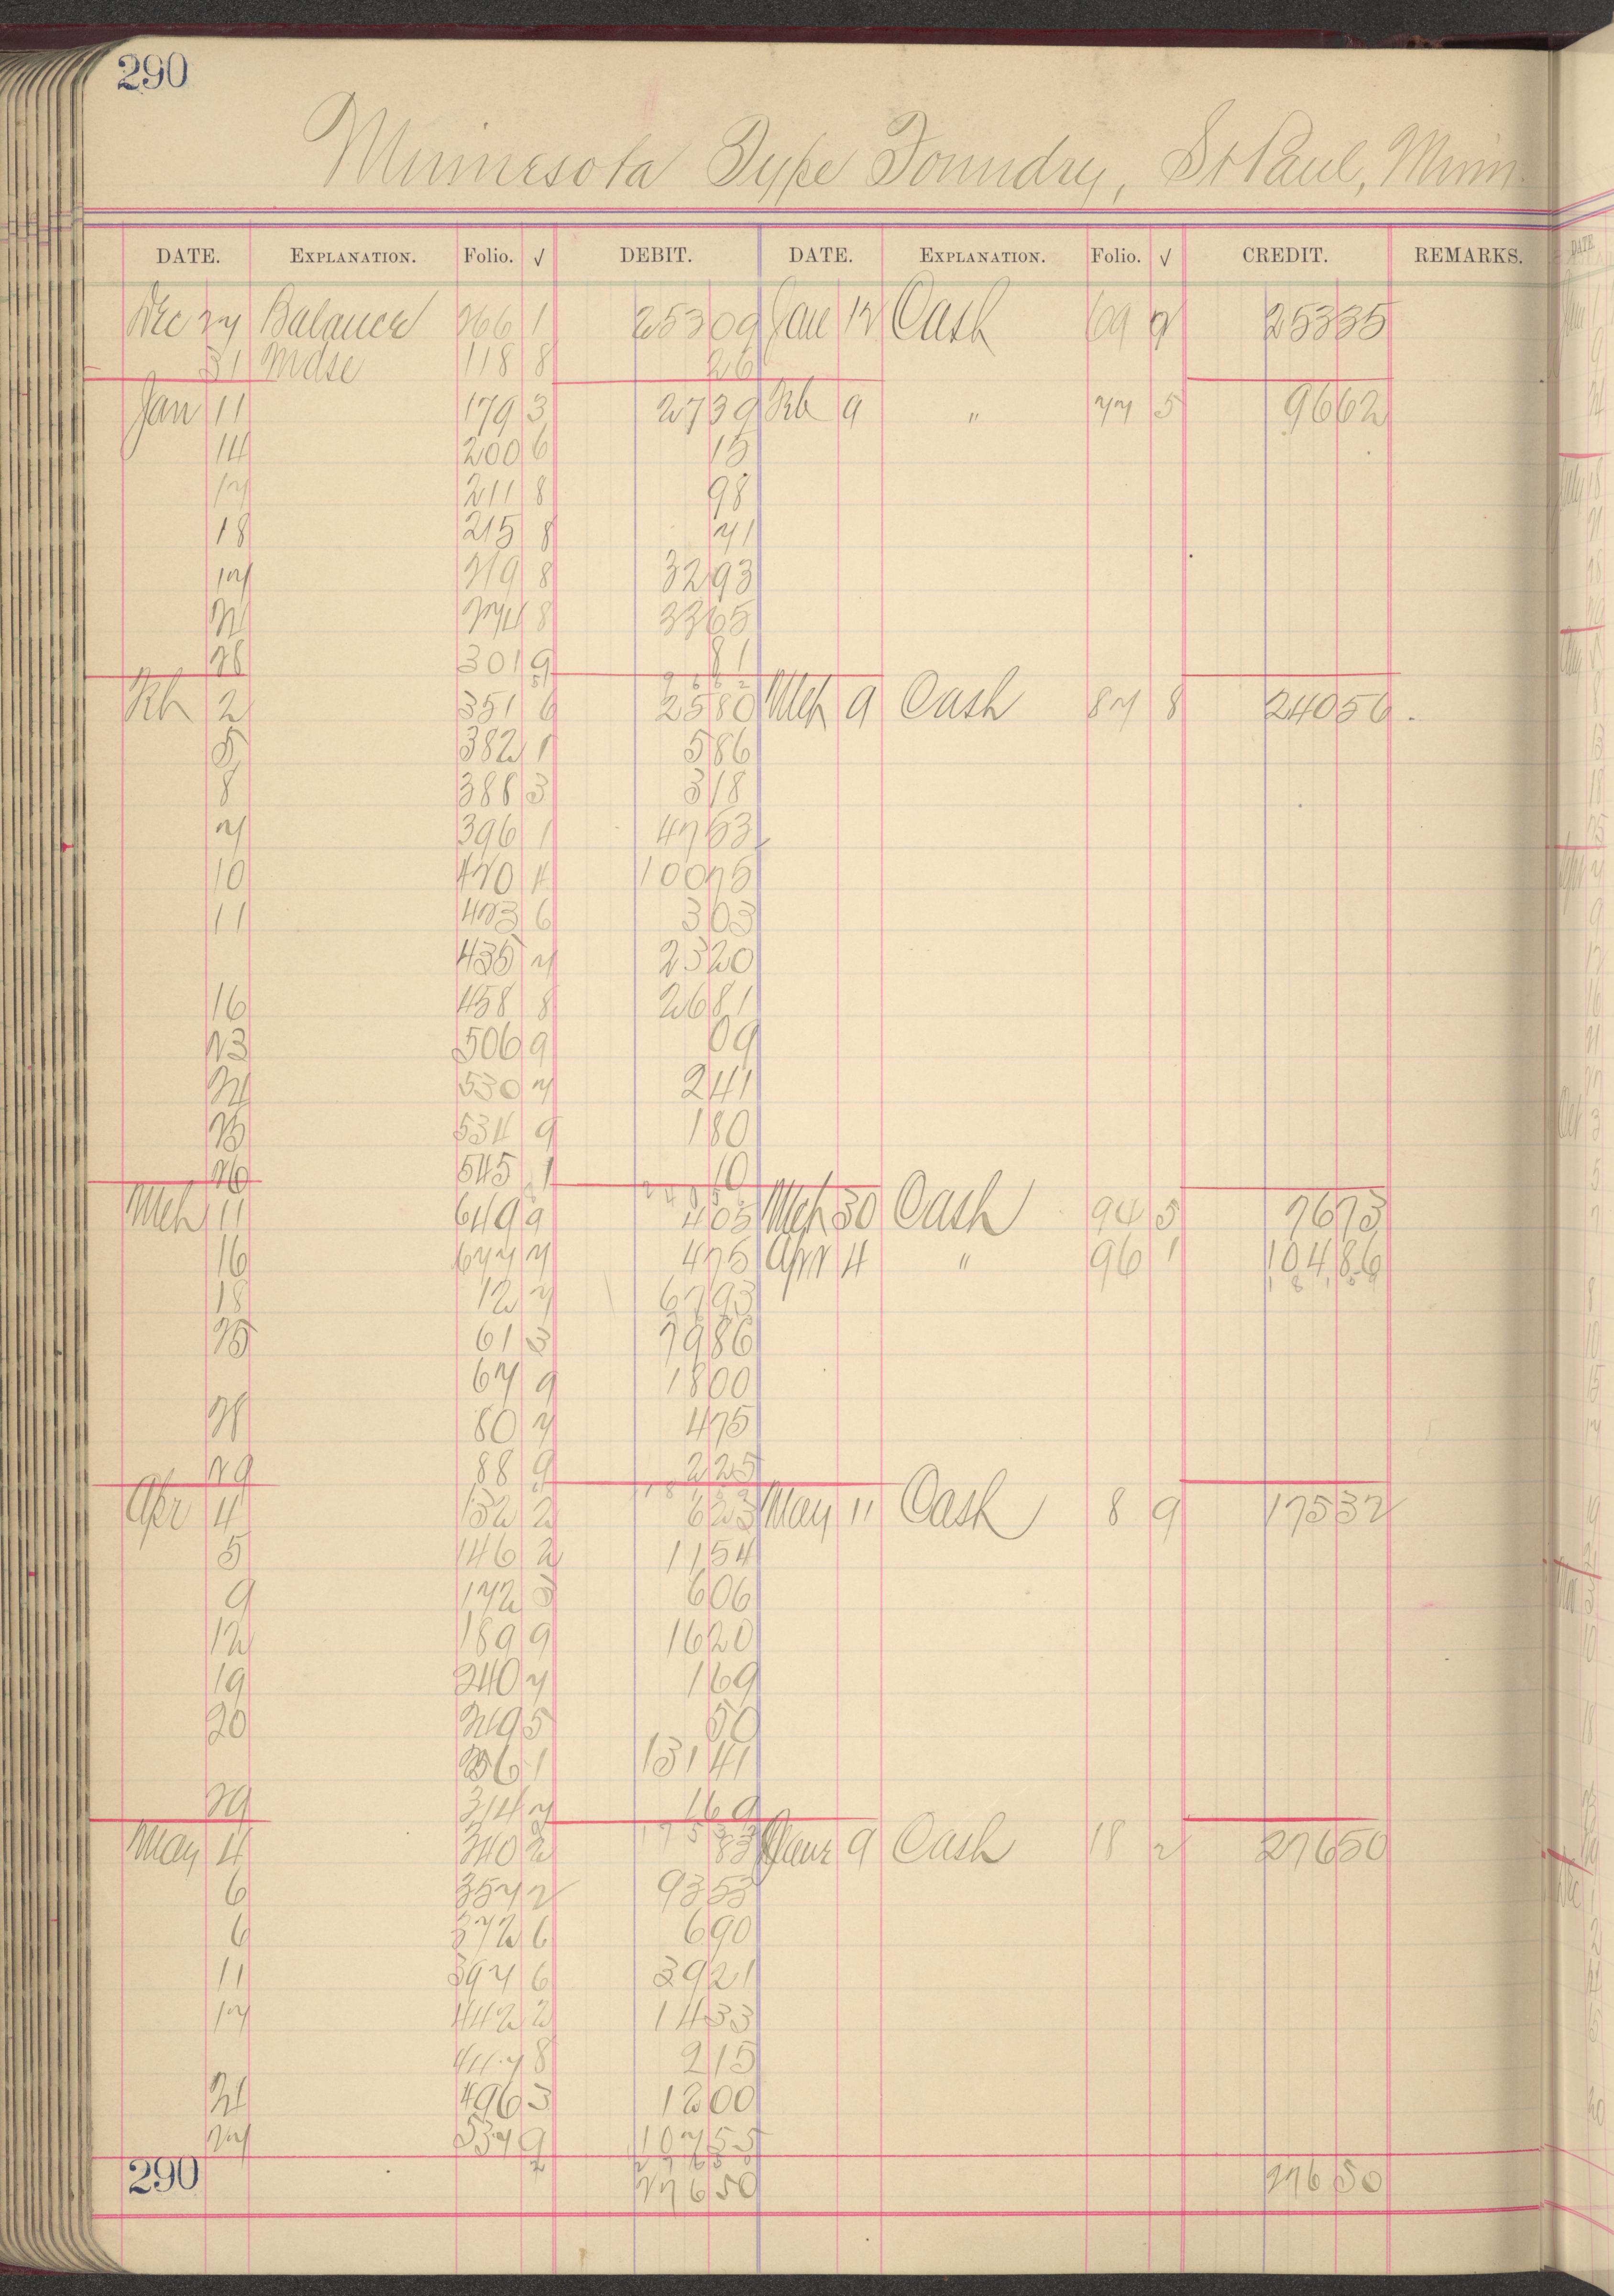 290
Minnesota Type Foundry, St Paul, Minn.
DATE. EXPLANATION. Folio. √ DEBIT. DATE. EXPLANATION. Folio. √ CREDIT. REMARKS.
Dec 27 Balance 266 1 25309 Jan 12 Cash 69 9 25335
31 Mdse 118 8 26
Jan 11 179 3 2739 Feb 9 " 77 5 9662
14 200 6 15
17 211 8 98
18 215 8 71
219 8 3293
8 3365
301 9 81
9662
Feb 2 351 6 2580 Mch 9 Cash 87 8 24056
5 382 1 586
8 388 3 318
396 1 4763
10 420 4 10075
11 423 6 303
435 7 2320
16 458 8 2681
23 506 9 09
24 530 7 241
25 534 9 180
26 545 1 10
Mch 11 649 9 405 Mch 30 Cash 94 5 7673
16 677 7 475 Apr 4 " 96 1 10486
18 12 7 6793
25 61 3 7986
67 9 1800
28 80 7 475
29 88 9 225
Apr 4 132 2 623 May 11 Cash 8 9 17532
5 146 2 1154
9 172 606
12 189 9 1620
19 240 7 169
20 249 5 50
256 1 13141
29 314 7 169
May 4 340 2 83 June 9 Cash 18 2 27650
6 357 2 9353
6 372 6 690
11 397 6 3921
17 442 2 1433
447 8 215
24 496 3 1200
27 537 9 10755
27650
290 27650 27650